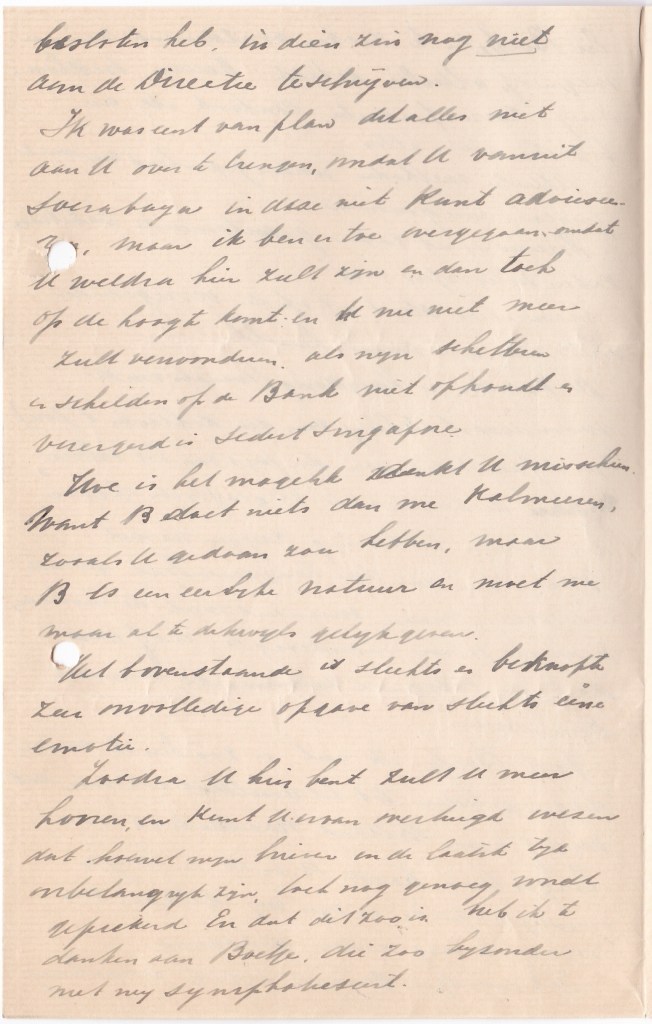 besloten heb, in dien zin nog niet
aan de Directie te schrijven.
Ik was eerst van plan dit alles niet
aan U over te brengen, omdat U vanuit
Soerabaya in deze niet kunt advisee-
ren, maar ik ben er toe overgegaan omdat
U weldra hier zult zijn en dan toch
op de hoogte komt en U nu niet meer
zult verwonderen, als mijn schelden
en schilden op de Bank niet ophoudt en
verergerd is sedert Singapore.
Hoe is het mogelijk denkt U misschien.
Want B doet niets dan me kalmeeren,
zooals U gedaan zou hebben, maar
B is een eerlijke natuur en moet me
maar al te dikwijls gelijk geven.
Het bovenstaande is slechts en beknopte
zeer onvolledige opgave van slechts éene
emotie.
Zoodra U hier bent zult U meer
hooren, en kunt U ervan overtuigd wezen
dat hoewel mijn brieven in de laatste tijd
onbelangrijk zijn, toch nog genoeg wordt
gepiekerd En dat dit zoo is heb ik te
danken aan Boetje, die zoo bijzonder
met mij symphatiseert.